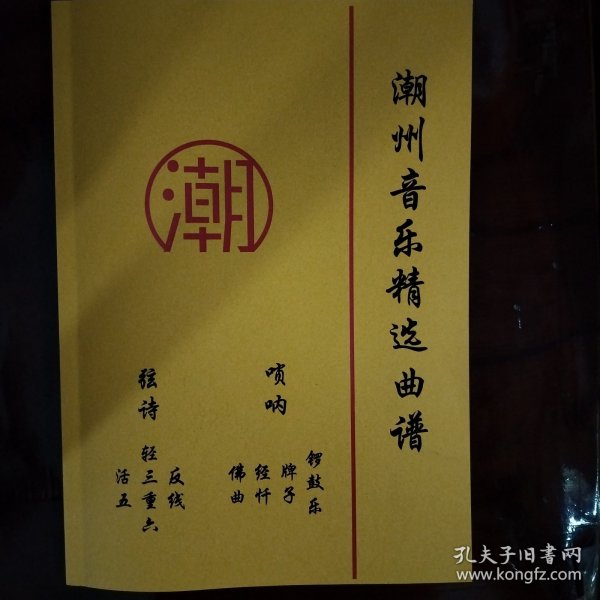 潮州音乐精选曲谱
潮
唢呐
锣鼓乐
牌子
经忏
佛曲
弦诗
反线
轻三重六
活五
孔夫子旧书网
www.kongfz.com